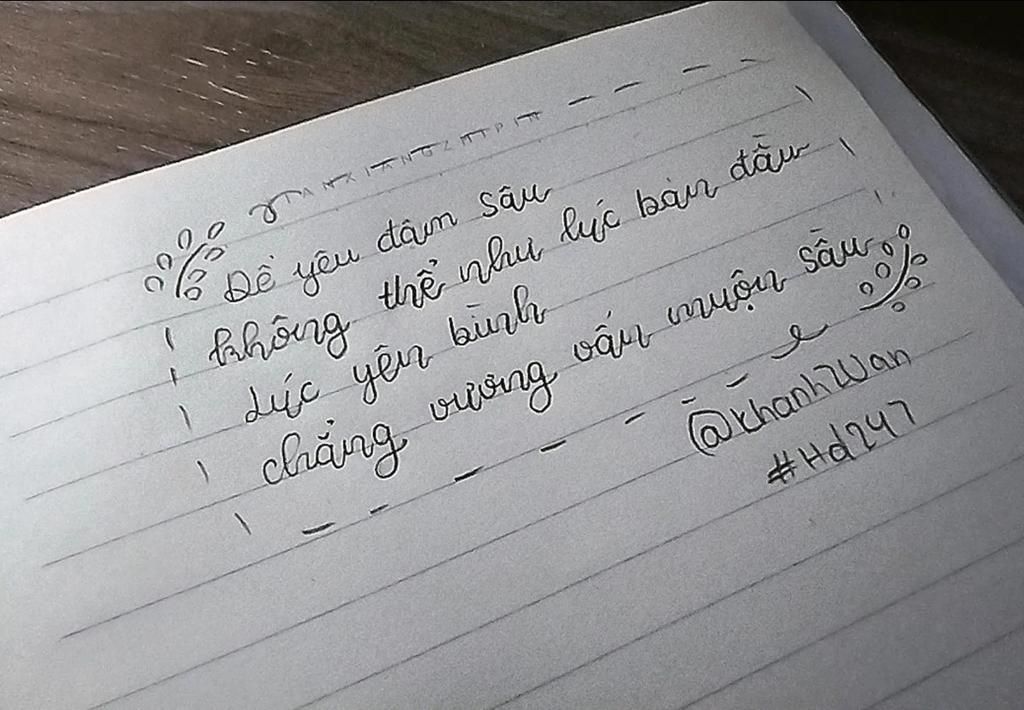 Để yêu đậm sâu
không thể như lúc ban đầu
Lúc yên bình
chẳng vương vấn muộn sầu
@KhanhWan
#Hd247